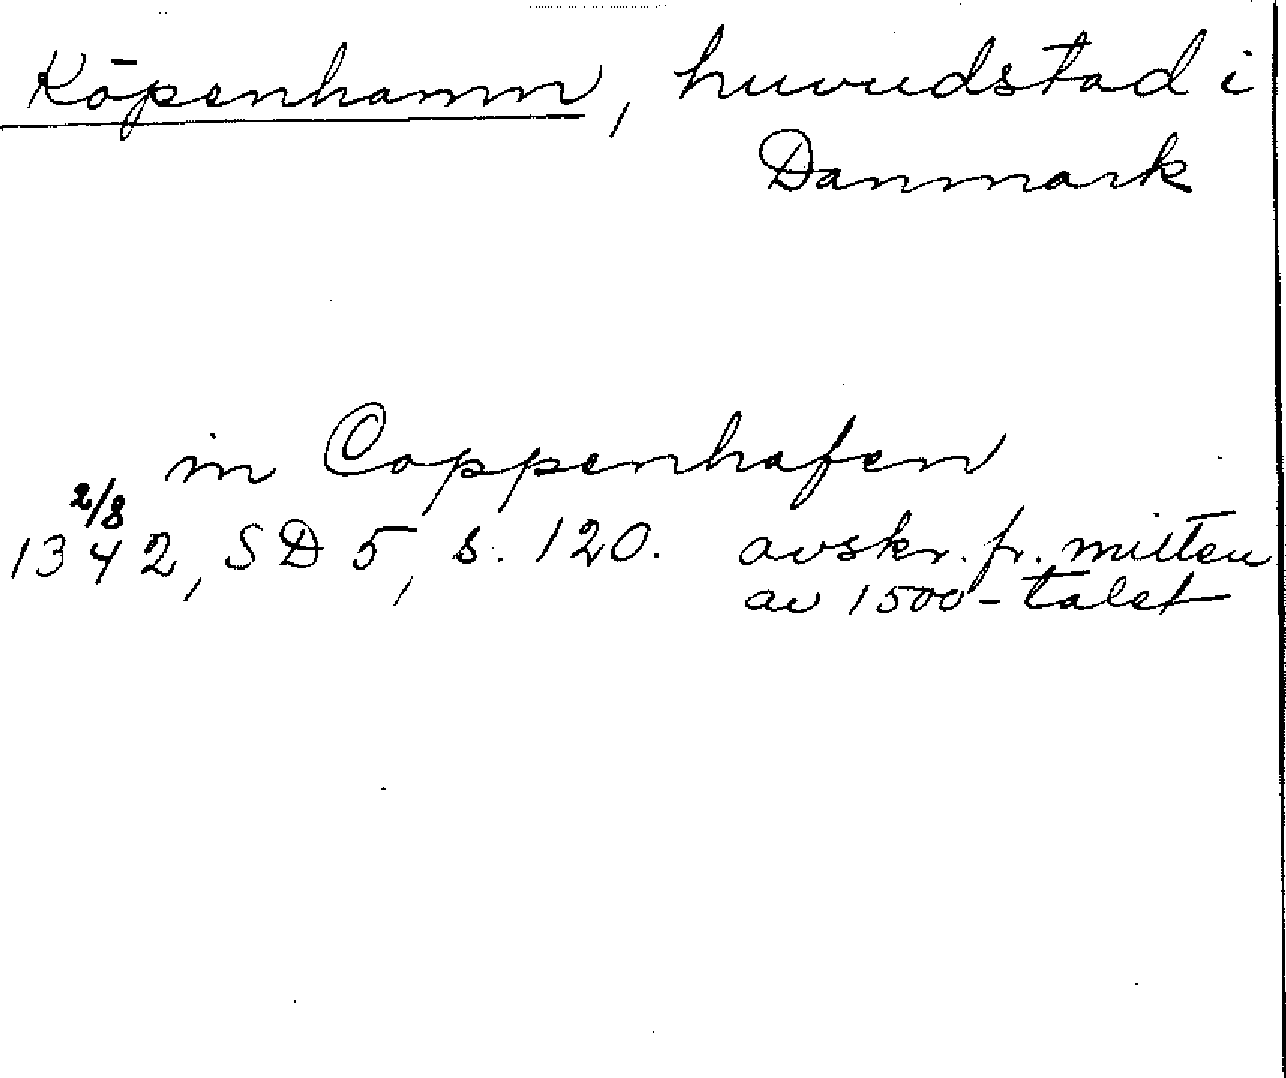 Köpenhamn, huvudstad i
Danmark
in Coppenhafen
2/8
1342, SD 5, s. 120. avskr. fr. mitten
av 1500-talet